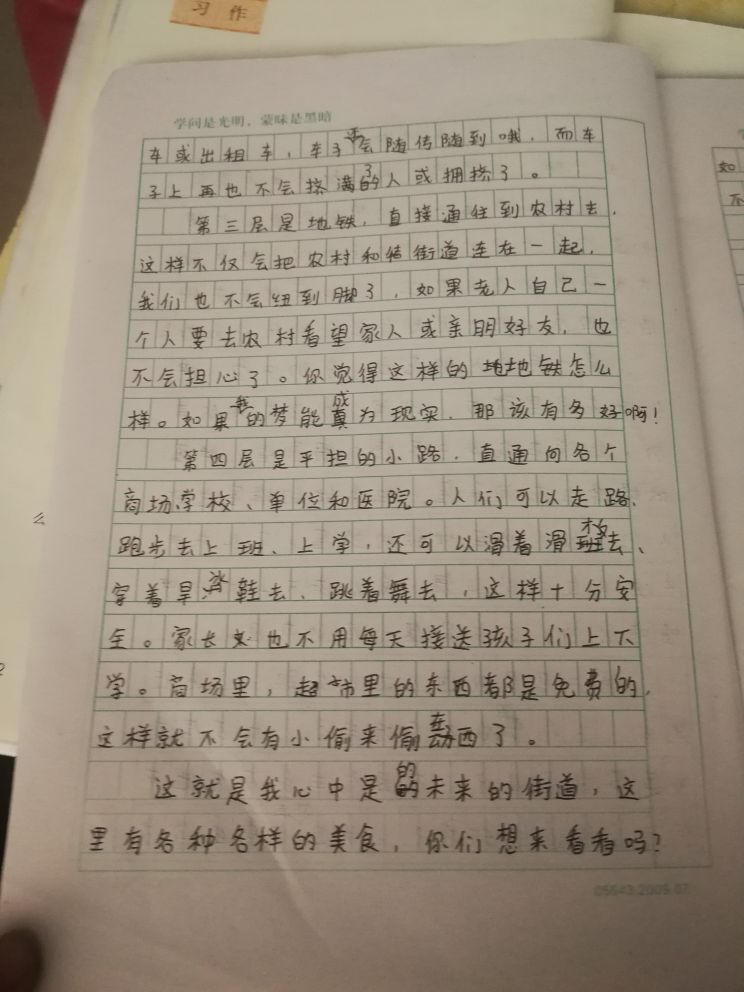 习作
学问是光明，蒙昧是黑暗
车或出租车，车子会随传随到哦，而车
子上再也不会挤满了的人或拥挤了。
第三层是地铁，直接通往到农村去，
这样不仅会把农村和街道连在一起，
我们也不会纽到脚了，如果老人自己一
个人要去农村看望家人或亲朋好友，也
不会担心了。你觉得这样的地铁怎么
样。如果我的梦能成为现实，那该有多好啊！
第四层是平担的小路，直通向各个
商场、学校、单位和医院。人们可以走路、
跑步去上班、上学，还可以滑着滑板去、
穿着旱冰鞋去、跳着舞去，这样十分安
全。家长也不用每天接送孩子们上下
学。商场里，超市里的东西都是免费的，
这样就不会有小偷来偷东西了。
这就是我心中是的未来的街道，这
里有各种各样的美食，你们想来看看吗？
05543.2009.07
如